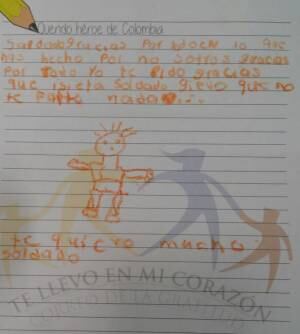 Querido héroe de Colombia
Saldado gracias Por todo lo que
has hecho Por no sotros gracias
Por todo Yo te Pido gracias
que soldado que no
te falte nada
te quiero mucho
soldado
TE LLEVO EN MI CORAZÓN
CORREO DE LA GRATITUD